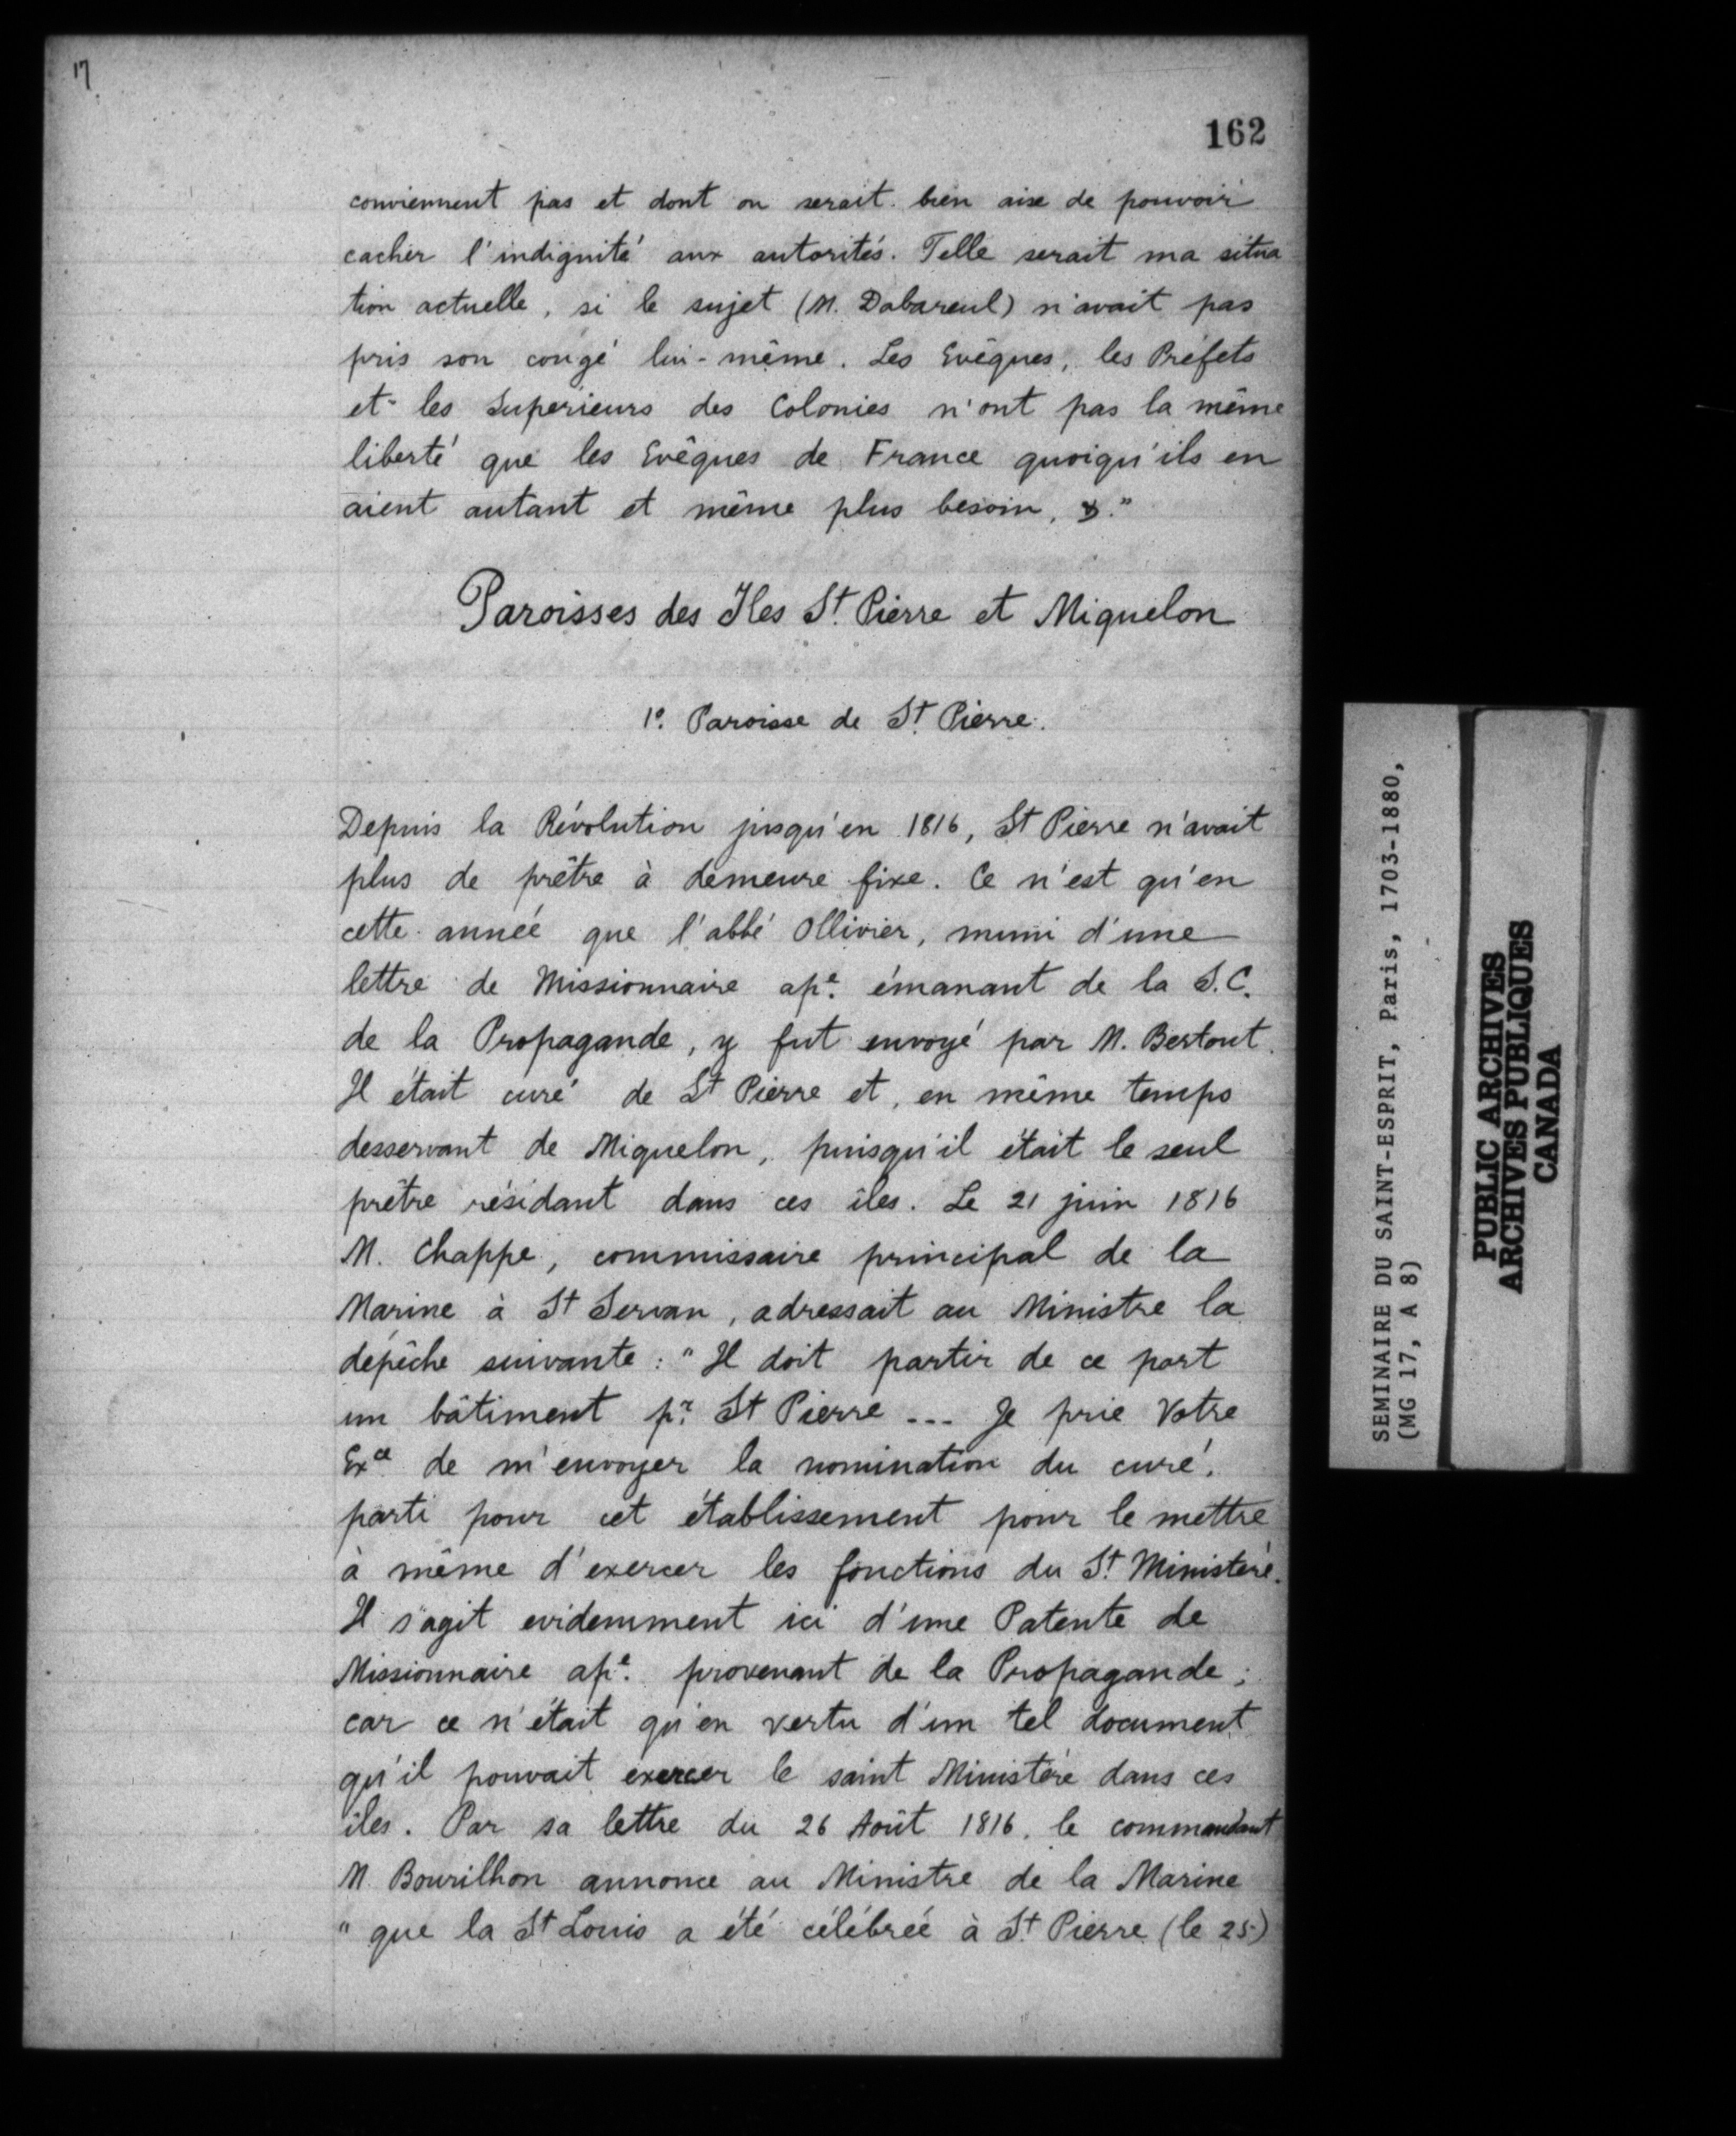 17
162
conviennent pas et dont on serait bien aise de pouvoir
cacher l'indignité aux autorités. Telle serait ma situa
tion actuelle, si le sujet (M. Dabareul) n'avait pas
pris son congé lui-même. Les Evêques, les Préfets
et les Superieurs des Colonies n'ont pas la même
liberté que les Evêques de France quoiqu'ils en
aient autant et même plus besoin, &."
Paroisses des Iles St. Pierre et Miquelon
1º. Paroisse de St. Pierre.
Depuis la Révolution jusqu'en 1816, St Pierre n'avait
plus de prêtre à demeure fixe. Ce n'est qu'en
cette année que l'abbé Ollivier, muni d'une
lettre de Missionnaire ape. émanant de la S.C.
de la Propagande, y fut envoyé par M. Bertout.
Il était curé de St Pierre et, en même temps
desservant de Miquelon, puisqu'il était le seul
prêtre résidant dans ces îles. Le 21 juin 1816
M. Chappe, commissaire principal de la
Marine à St Servan, adressait au Ministre la
dépêche suivante: "Il doit partir de ce port
un bâtiment pr. St Pierre --- Je prie Votre
Exce de m'envoyer la nomination du curé,
parti pour cet établissement pour le mettre
à même d'exercer les fonctions du St. Ministère.
Il s'agit evidemment ici d'une Patente de
Missionnaire ape. provenant de la Propagande;
car ce n'était qu'en vertu d'un tel document
qu'il pouvait exercer le saint Ministère dans ces
îles. Par sa lettre du 26 Août 1816, le commandant
M. Bourilhon annonce au Ministre de la Marine
" que la St Louis a été célébrée à St. Pierre (le 25)
SEMINAIRE DU SAINT-ESPRIT, Paris, 1703-1880,
(MG 17, A 8)
PUBLIC ARCHIVES
ARCHIVES PUBLIQUES
CANADA